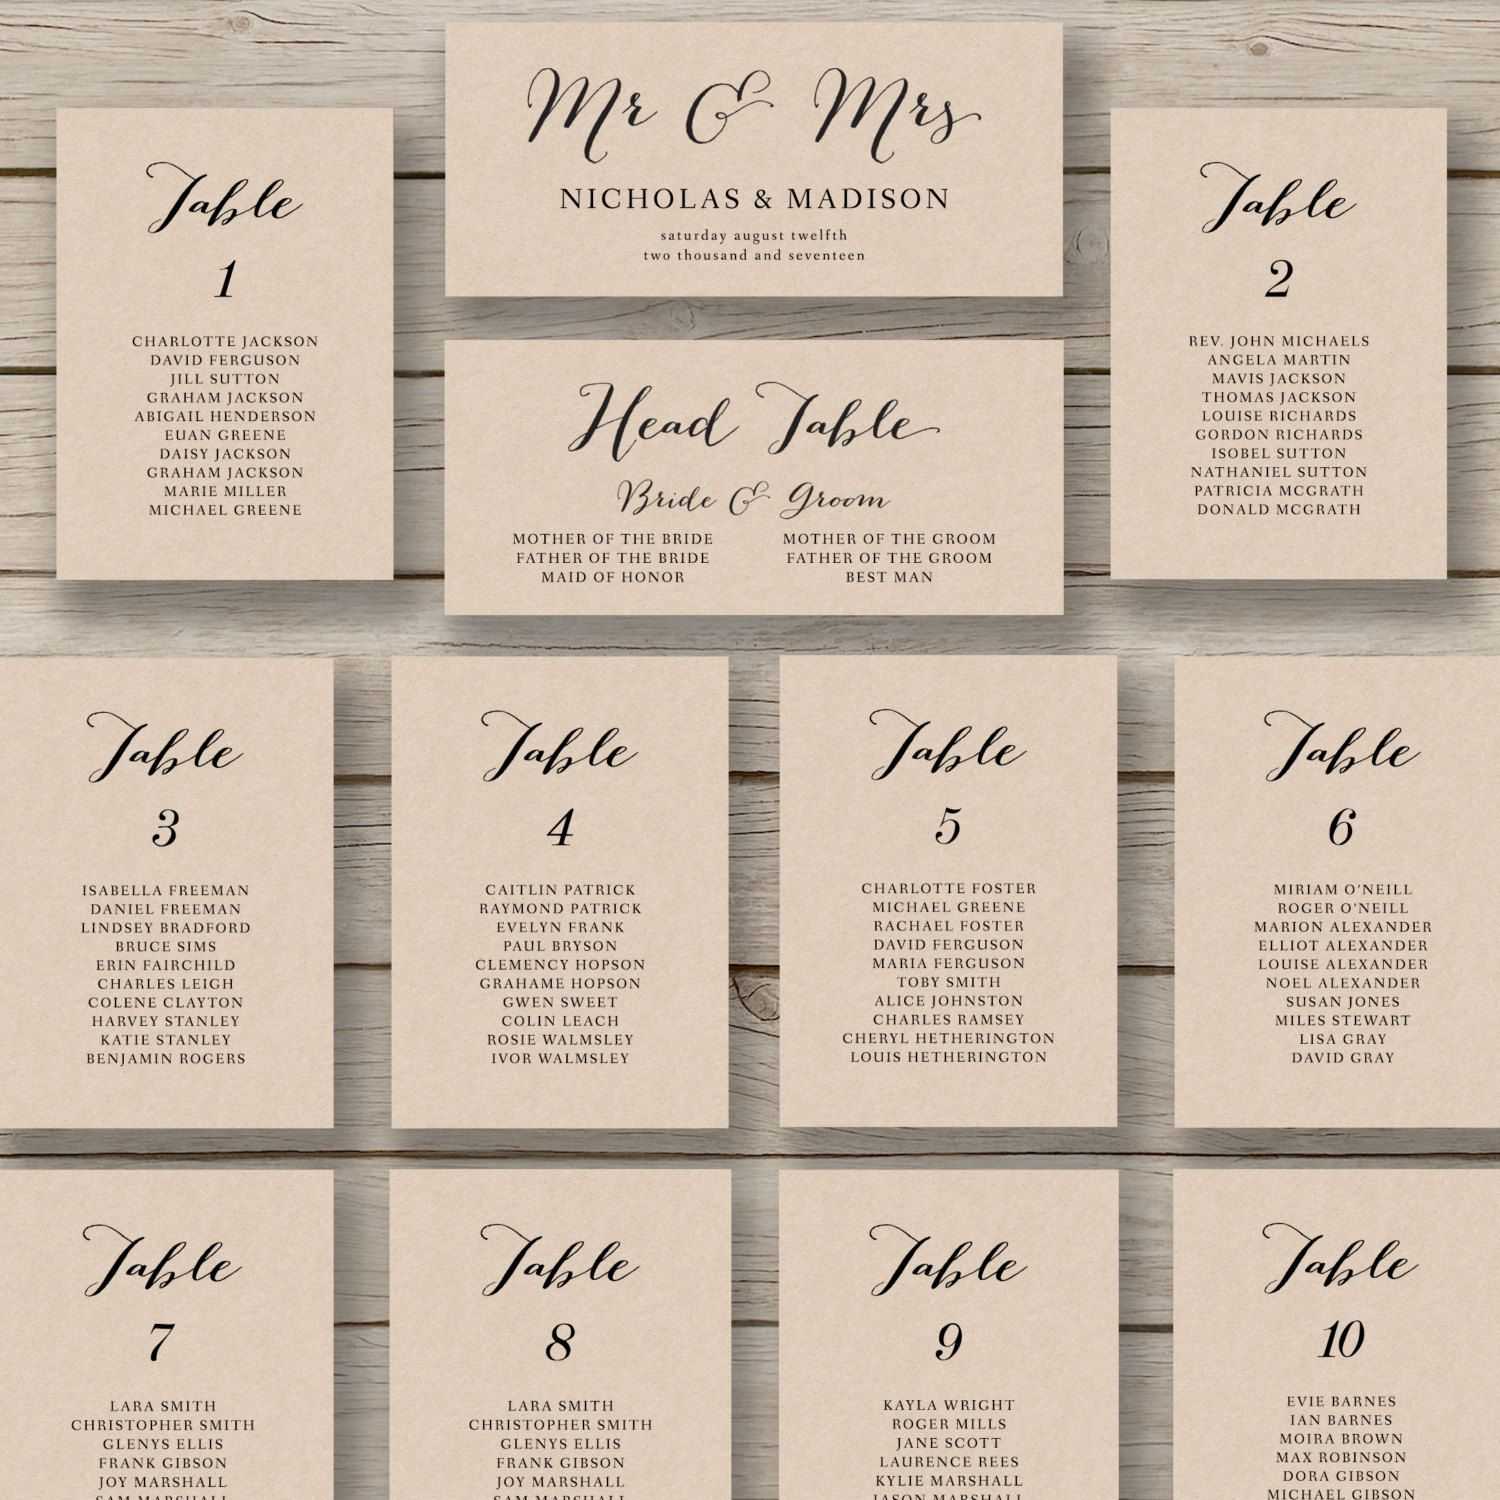 Mr & Mrs
NICHOLAS & MADISON
saturday august twelfth
two thousand and seventeen
Table
1
CHARLOTTE JACKSON
DAVID FERGUSON
JILL SUTTON
GRAHAM JACKSON
ABIGAIL HENDERSON
EUAN GREENE
DAISY JACKSON
GRAHAM JACKSON
MARIE MILLER
MICHAEL GREENE
Head Table
Bride & Groom
MOTHER OF THE BRIDE
FATHER OF THE BRIDE
MAID OF HONOR
MOTHER OF THE GROOM
FATHER OF THE GROOM
BEST MAN
Table
2
REV. JOHN MICHAELS
ANGELA MARTIN
MAVIS JACKSON
THOMAS JACKSON
LOUISE RICHARDS
GORDON RICHARDS
ISOBEL SUTTON
NATHANIEL SUTTON
PATRICIA MCGRATH
DONALD MCGRATH
Table
3
ISABELLA FREEMAN
DANIEL FREEMAN
LINDSEY BRADFORD
BRUCE SIMS
ERIN FAIRCHILD
CHARLES LEIGH
COLENE CLAYTON
HARVEY STANLEY
KATIE STANLEY
BENJAMIN ROGERS
Table
4
CAITLIN PATRICK
RAYMOND PATRICK
EVELYN FRANK
PAUL BRYSON
CLEMENCY HOPSON
GRAHAME HOPSON
GWEN SWEET
COLIN LEACH
ROSIE WALMSLEY
IVOR WALMSLEY
Table
5
CHARLOTTE FOSTER
MICHAEL GREENE
RACHAEL FOSTER
DAVID FERGUSON
MARIA FERGUSON
TOBY SMITH
ALICE JOHNSTON
CHARLES RAMSEY
CHERYL HETHERINGTON
LOUIS HETHERINGTON
Table
6
MIRIAM O'NEILL
ROGER O'NEILL
MARION ALEXANDER
ELLIOT ALEXANDER
LOUISE ALEXANDER
NOEL ALEXANDER
SUSAN JONES
MILES STEWART
LISA GRAY
DAVID GRAY
Table
7
LARA SMITH
CHRISTOPHER SMITH
GLENYS ELLIS
FRANK GIBSON
JOY MARSHALL
SAM MARSHALL
Table
8
LARA SMITH
CHRISTOPHER SMITH
GLENYS ELLIS
FRANK GIBSON
JOY MARSHALL
SAM MARSHALL
Table
9
KAYLA WRIGHT
ROGER MILLS
JANE SCOTT
LAURENCE REES
KYLIE MARSHALL
JASON MARSHALL
Table
10
EVIE BARNES
IAN BARNES
MOIRA BROWN
MAX ROBINSON
DORA GIBSON
MICHAEL GIBSON